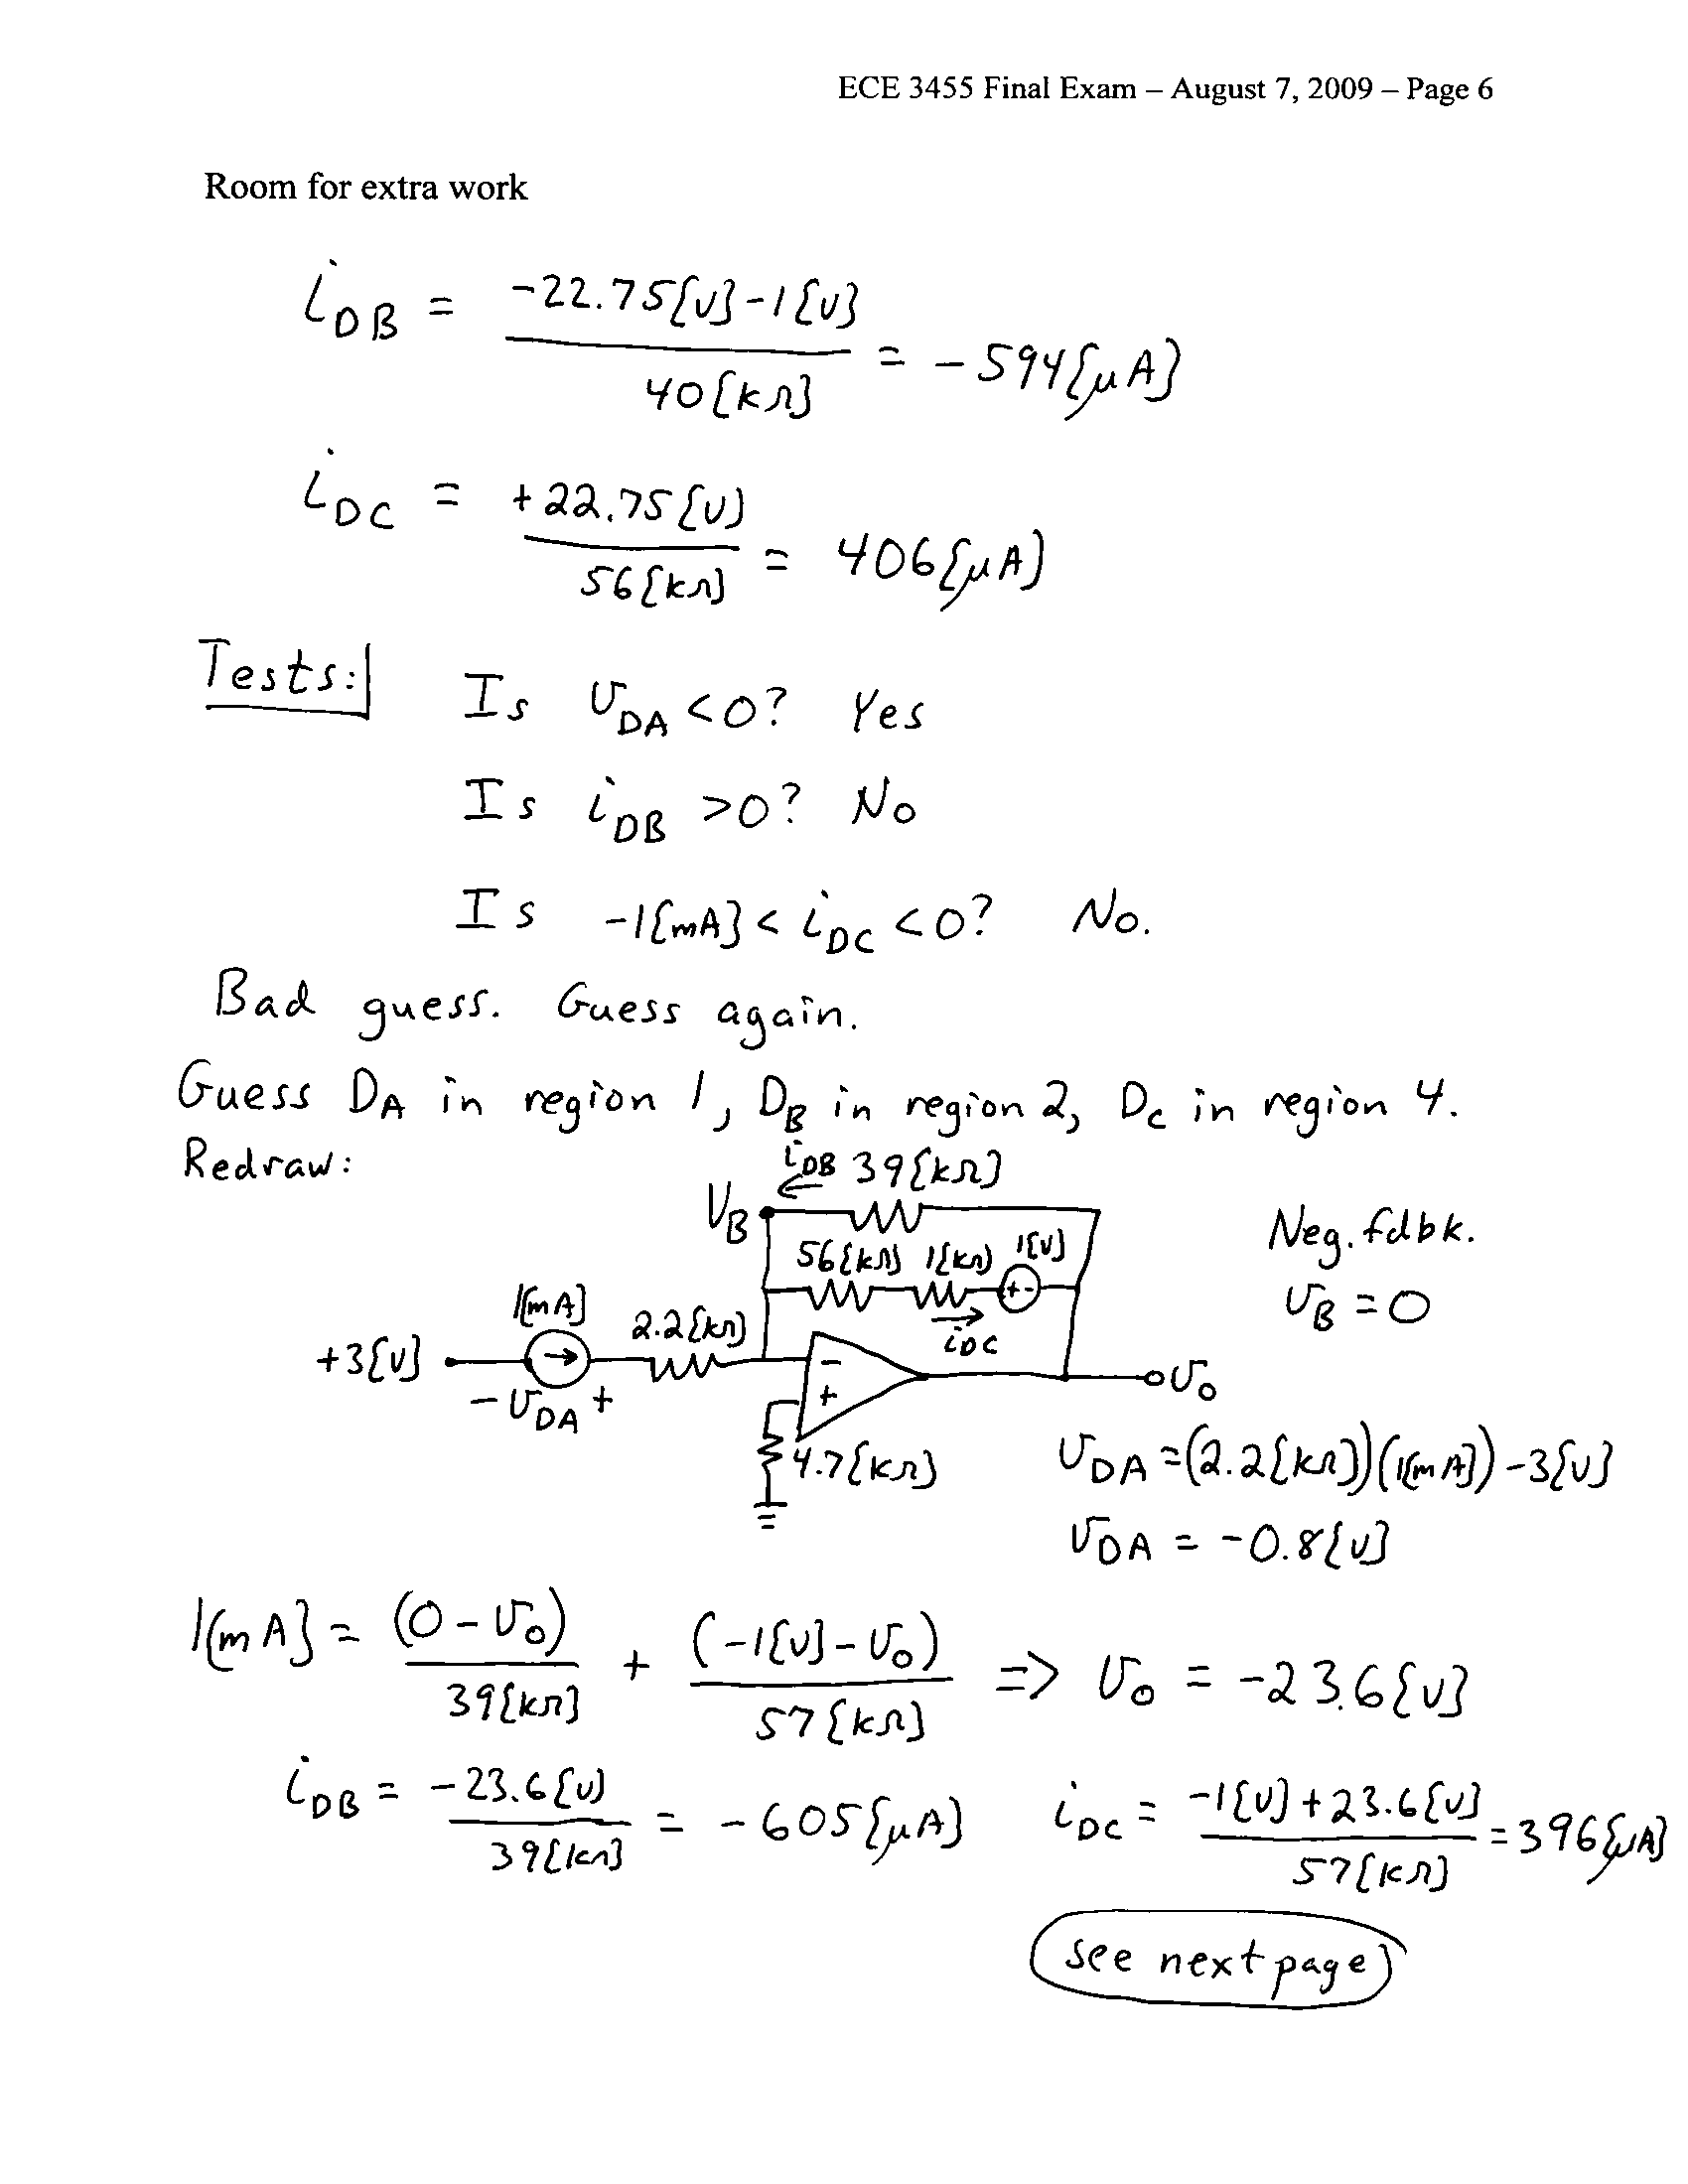 ECE 3455 Final Exam – August 7, 2009 – Page 6
Room for extra work
i_DB = (-22.75[V] - 1[V]) / 40[kΩ] = -594[μA]
i_DC = +22.75[V] / 56[kΩ] = 406[μA]
Tests: Is v_DA < 0? Yes
Is i_DB > 0? No
Is -1[mA] < i_DC < 0? No.
Bad guess. Guess again.
Guess D_A in region 1, D_B in region 2, D_C in region 4.
Redraw:
i_DB 39[kΩ]
V_B
56[kΩ] 1[kΩ] 1[V]
+ -
i_DC
Neg. fdbk.
v_B = 0
1[mA]
2.2[kΩ]
+3[V]
- v_DA +
-
+
v_o
4.7[kΩ]
v_DA = (2.2[kΩ])(1[mA]) - 3[V]
v_DA = -0.8[V]
1[mA] = (0 - v_o) / 39[kΩ] + (-1[V] - v_o) / 57[kΩ] => v_o = -23.6[V]
i_DB = -23.6[V] / 39[kΩ] = -605[μA]
i_DC = (-1[V] + 23.6[V]) / 57[kΩ] = 396[μA]
see next page